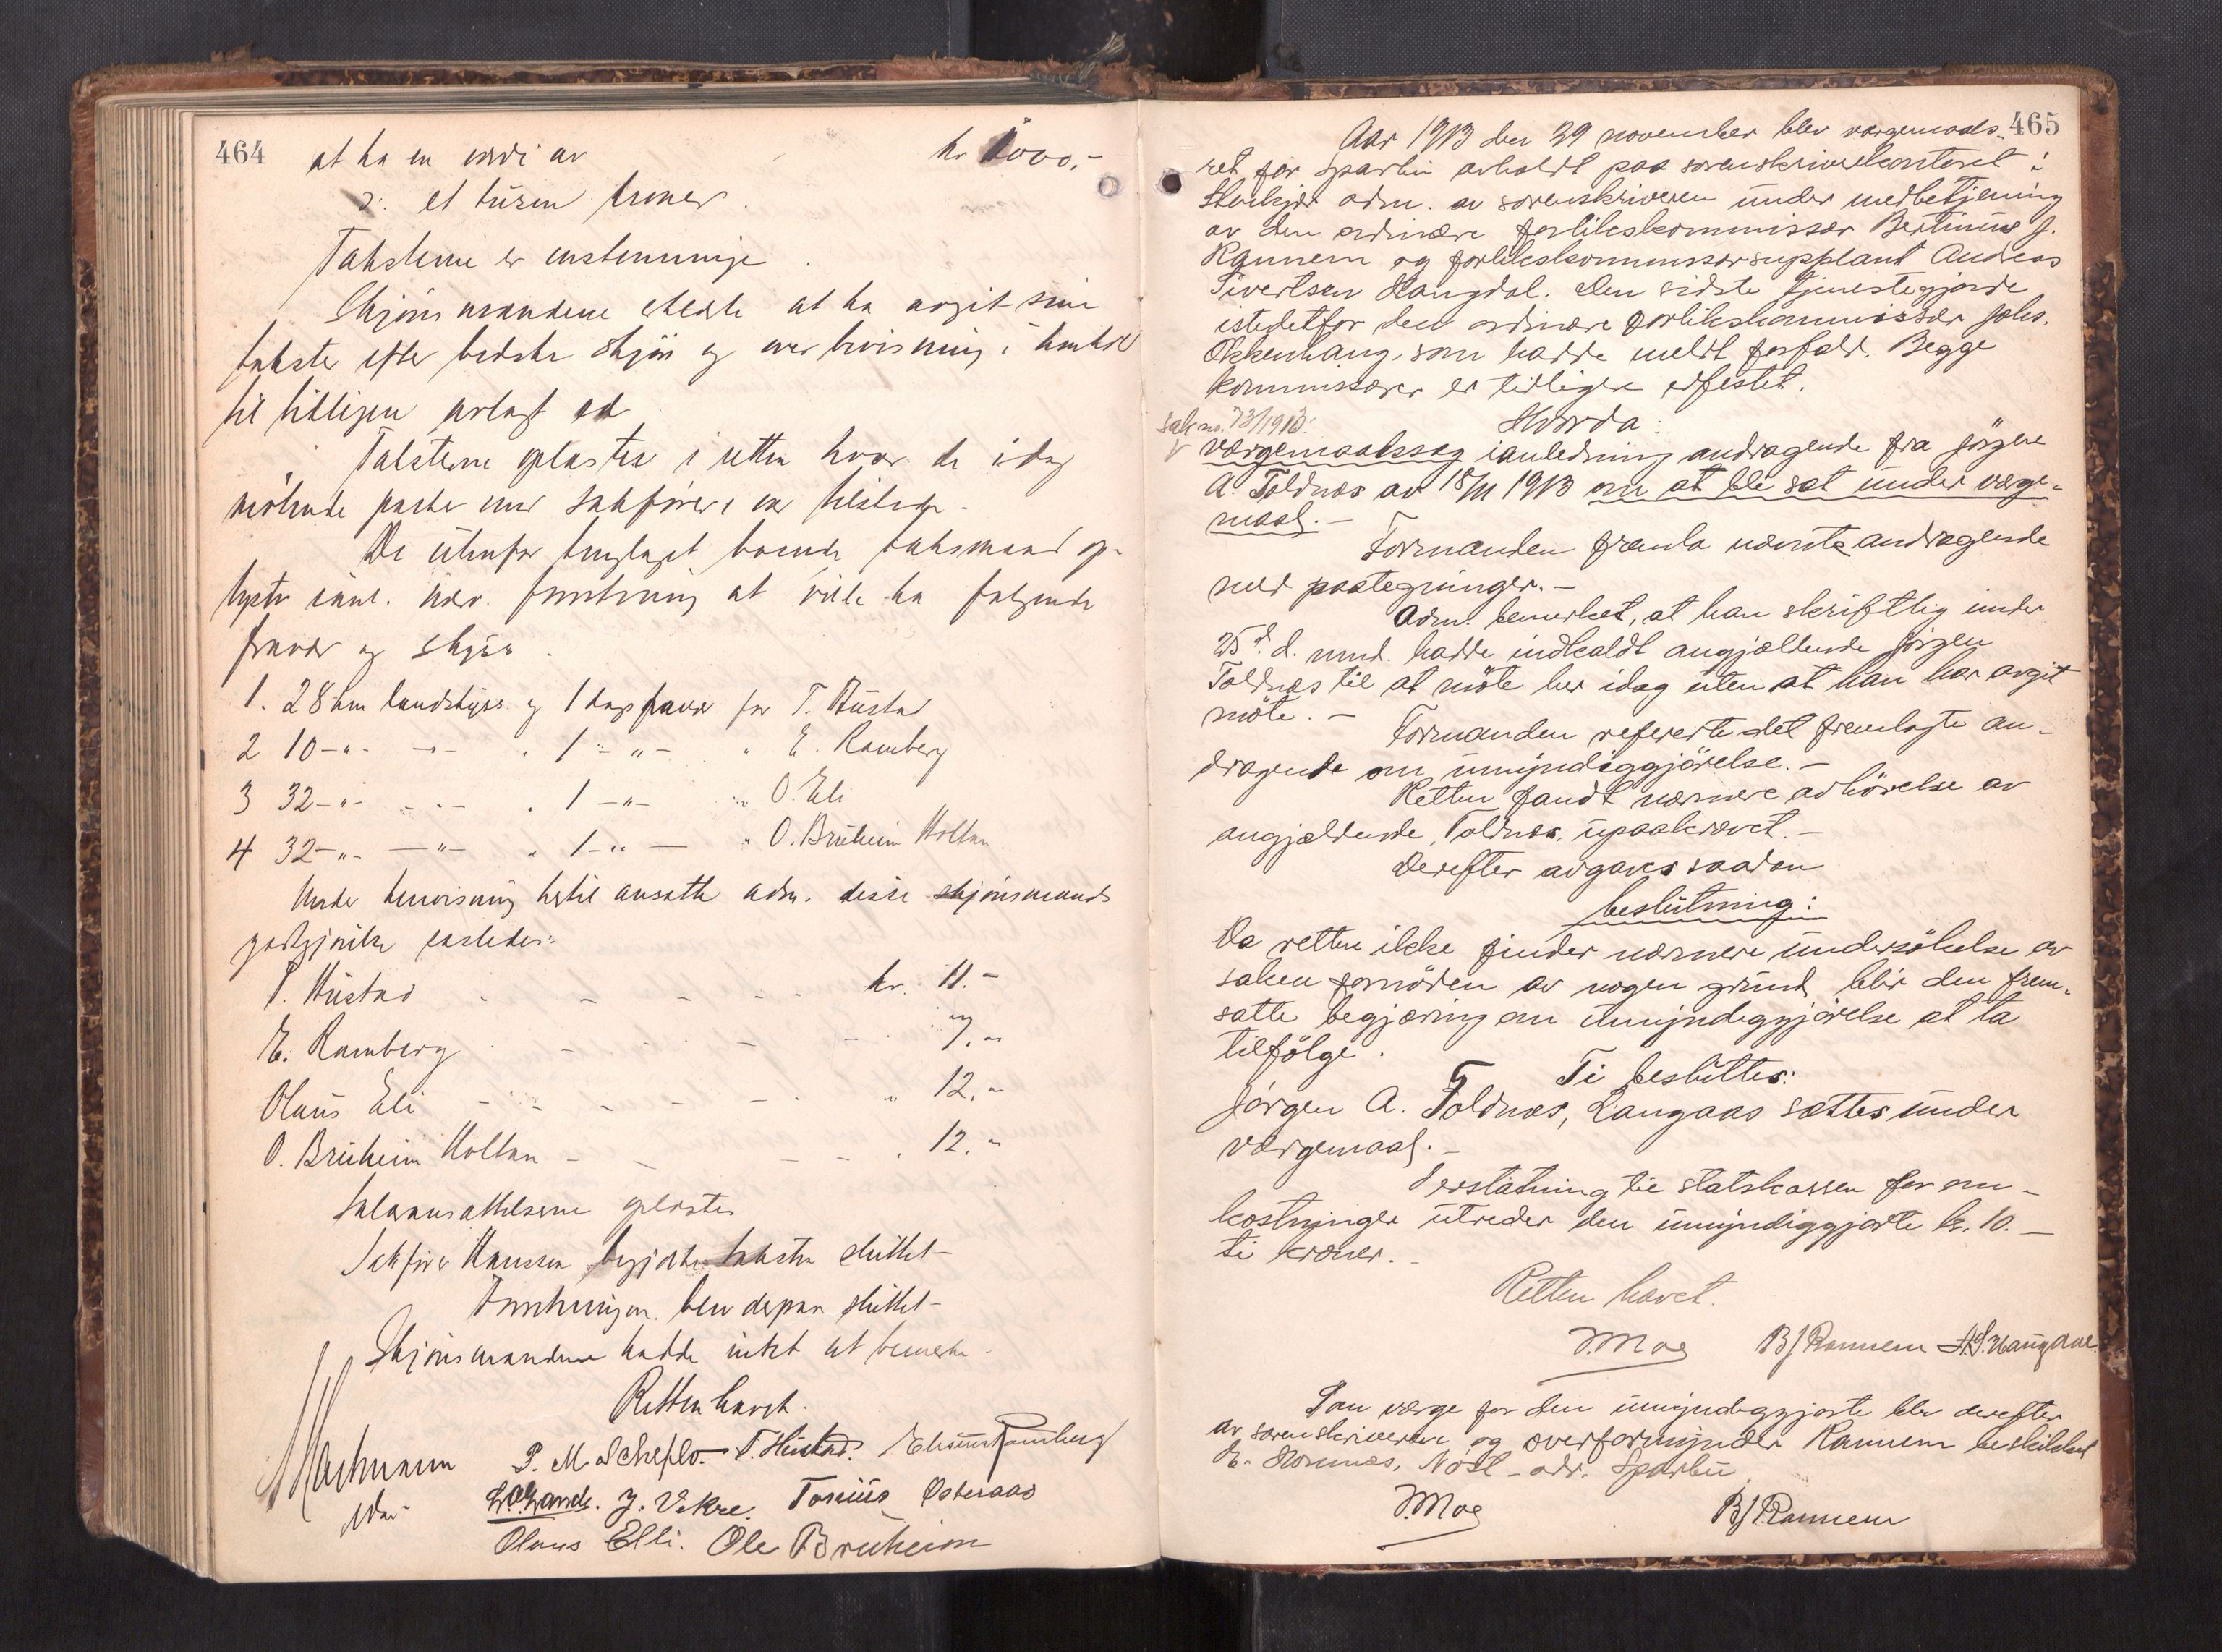 464
at ha en værdi av kr 1000,-
ɔ: et tusen kroner.
Taksterne er enstemmige.
Skjønsmændene erklærte at ha avgit sine
takster efter bedste skjøn og overbevisning i henhold
til tidligere avlagt ed
Taksterne oplæstes i retten hvor de idag
møtende parter med sakfører var tilstede.
De utenfor tinglaget boende taksmænd op-
lyste vedr. forretning at ville ha følgende
fravær og skyss.
1. 28 km landskyss og 1 dags fravær for T. Hustad
2 10 -"- -"- " 1 -"- " E. Ramberg
3 32 -"- -"- " 1 -"- " O. Eli
4 32 -"- -"- " 1 -"- " O. Bruheim Holtan
Under henvisning hertil ansatte adm. disse skjønsmænds
godtgjørelse saaledes:
T. Hustad - - - - kr. 11.-
E. Ramberg - - - - " 7.-
Olaus Eli - - - - " 12.-
O. Bruheim Holtan - - - - " 12.-
Salæransættelserne oplæstes
Sakfører Hanssen begjærte taksten sluttet-
Forretningen blev derpaa sluttet-
Skjønsmændene hadde intet at bemerke.
Retten hævet.
P. M. Scheflo. T. Hustad. Edvin Ramberg
J. Vekre. Tonius Østeraas
Olaus Elli. Ole Bruheim
465
Aar 1913 den 29 november blev værgemaals-
ret for Sparbu avholdt paa sorenskriverkontoret i
Stenkjær adm. av sorenskriveren under medbetjening
av den ordinære forlikskommissær Bertinus J.
Rannem og forlikskommissærsupplant Andreas
Sivertsen Haugdal. Den sidste tjenestegjorde
istedetfor den ordinære forlikskommissær Johs.
Okkenhaug, som hadde meldt forfald. Begge
kommissærer er tidligere edfestet.
Hvorda:
Sak no. 73/1913:
v værgemaalssag ianledning andragende fra Jørgen
A. Foldnæs av 18/11 1913 om at bli sat under værge-
maal.-
Formanden fremla nævnte andragende
med paategninger.-
Adm. bemerket, at han skriftlig under
25d. d. mnd. hadde indkaldt angjældende Jørgen
Foldnæs til at møte her idag uten at han har avgit
møte.-
Formanden refererte det fremlagte an-
dragende om umyndiggjørelse.-
Retten fandt nærmere avhørelse av
angjældende, Foldnæs, upaakrævet.-
Derefter avgaves saadan
beslutning:
Da retten ikke finder nærmere undersøkelse av
saken fornøden av nogen grund, blir den frem-
satte begjæring om umyndiggjørelse at ta
tilfølge.
Ti besluttes:
Jørgen A. Foldnæs, Langaas sættes under
værgemaal.-
I erstatning til statskassen for om-
kostninger utreder den umyndiggjorte kr. 10.-
ti kroner.-
Retten hævet.
J. Moe B J Rannem A. S. Haugdal
Som værge for den umyndiggjorte blev derefter
av sorenskriveren og overformynder Rannem beskikket
Nøst- adr. Sparbu
J. Moe B J Rannem